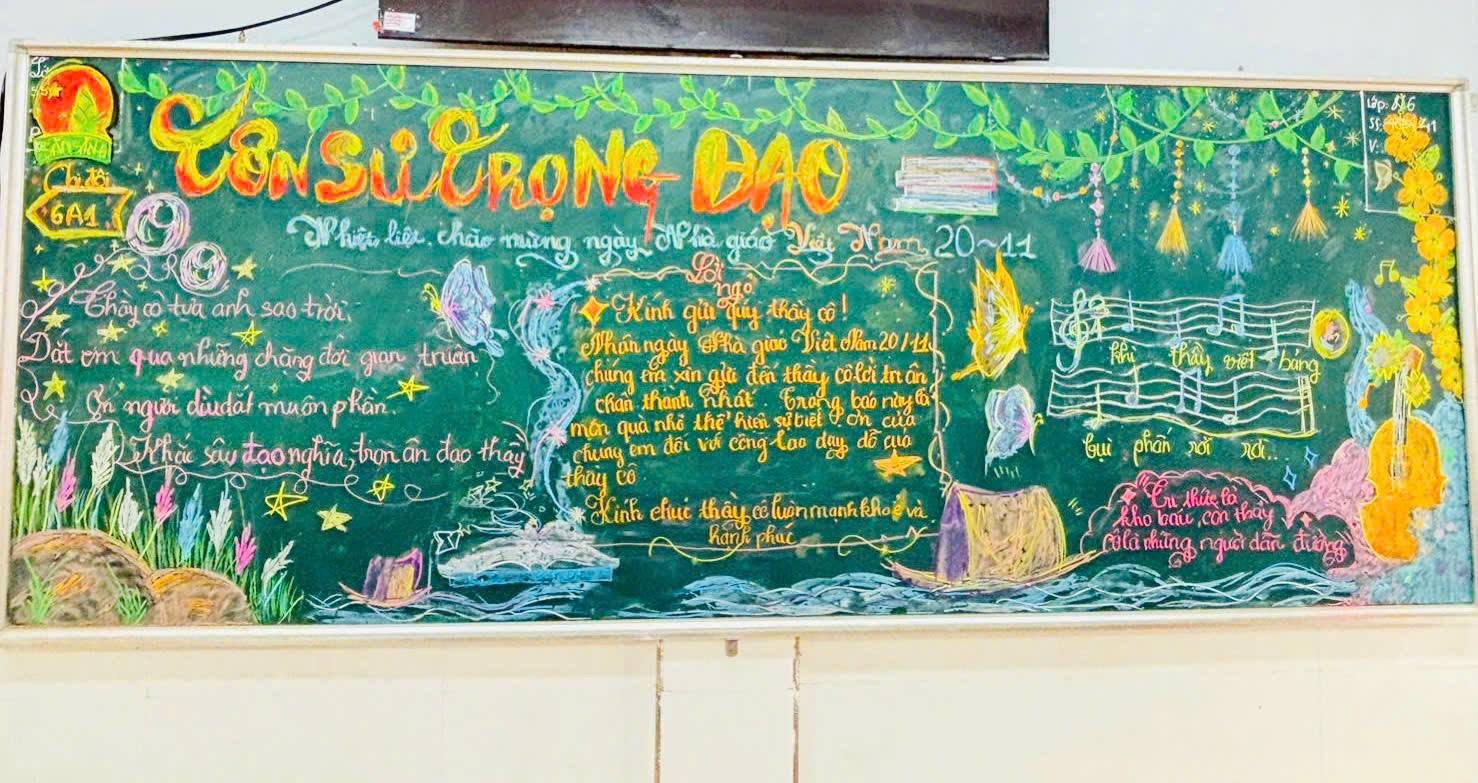 Chi đội
6A1
TÔN SƯ TRỌNG ĐẠO
Nhiệt liệt chào mừng ngày Nhà giáo Việt Nam 20~11
Thầy cô tựa ánh sao trời,
Dắt em qua những chặng đời gian truân
Ơn người dìu dắt muôn phần.
Khắc sâu đạo nghĩa, trọn ân đạo thầy
Lời
ngỏ
Kính gửi quý thầy cô!
Nhân ngày Nhà giáo Việt Nam 20/11
chúng em xin gửi đến thầy cô lời tri ân
chân thành nhất. Trang báo này là
món quà nhỏ thể hiện sự biết ơn của
chúng em đối với công lao dạy dỗ của
thầy cô
Kính chúc thầy cô luôn mạnh khoẻ và
hạnh phúc
Khi thầy viết bảng
bụi phấn rơi rơi...
Tri thức là
kho báu, còn thầy
cô là những người dẫn đường
Lớp:
SS:
V: